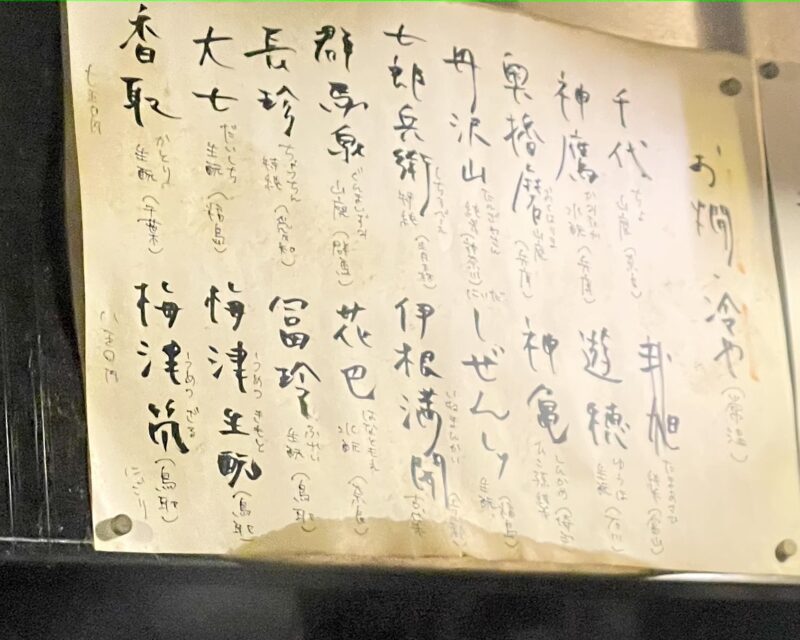 お燗、冷や
千代 ちよ 山廃 (奈良)
神鷹 水酛 (兵庫)
奥播磨 おくはりま 山廃 (兵庫)
丹沢山 たんざわさん 純米 (神奈川)
七郎兵衛 特純 (青森)
群馬泉 ぐんまいずみ 山廃 (群馬)
長珍 ちょうちん 特純 (愛知)
大七 だいしち 生酛 (福島)
香取 かとり 生酛 (千葉)
七五〇円
玉旭 純米 (富山)
遊穂 ゆうほ 生酛 (石川)
神亀 しんかめ 純米 (埼玉)
にいだ しぜんしゅ 生酛 (福島)
伊根満開 いねまんかい 古代米 (京都)
花巴 はなともえ 水酛 (奈良)
冨玲 ふれい 生酛 (鳥取)
梅津生酛 うめつきもと (鳥取)
梅津笊 うめつざる (鳥取) にごり